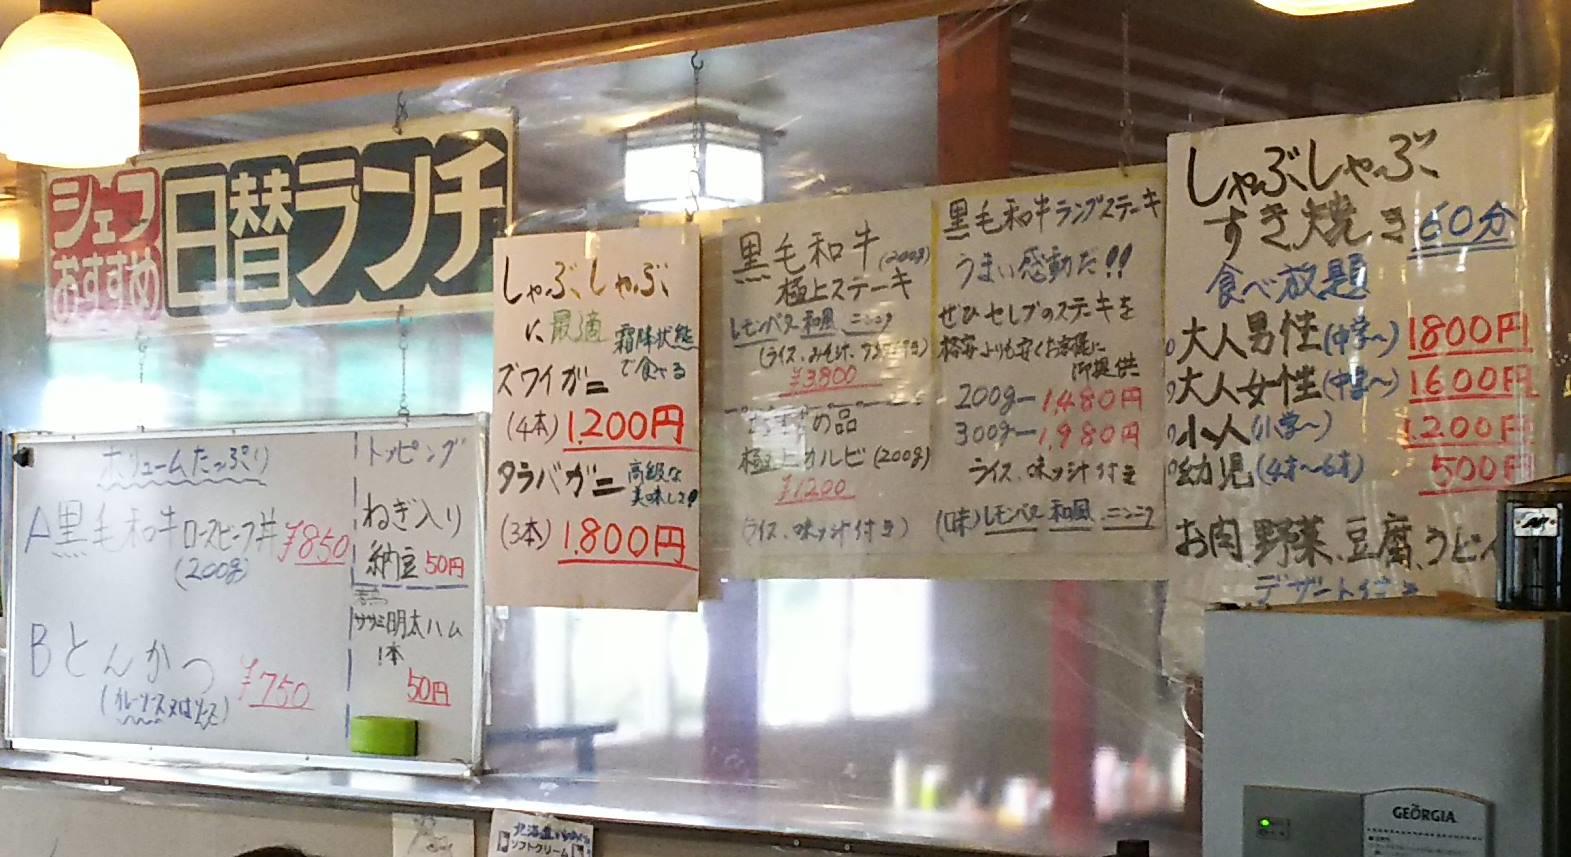 シェフ
おすすめ
日替ランチ
ボリュームたっぷり
A黒毛和牛ローズビーフ丼¥850
(200g)
Bとんかつ ¥750
トッピング
ねぎ入り
納豆 50円
ササミ明太ハム
1本
50円
しゃぶしゃぶ
に最適 霜降状態
で食べる
ズワイガニ
(4本) 1.200円
タラバガニ 高級な
美味しさ!!
(3本) 1.800円
黒毛和牛(200g)
極上ステーキ
レモンバター 和風 ニンニク
¥3,800
の品
極上カルビ(200g)
¥1200
(ライス、味ソ汁付き)
黒毛和牛ランプステーキ
うまい感動だ!!
ぜひセレブのステーキを
格安よりも安くお客様に
御提供
200g—1,480円
300g—1,980円
ライス、味ソ汁付き
(味)レモンバター 和風 ニンニク
しゃぶしゃぶ
すき焼き60分
食べ放題
大人男性(中学〜) 1800円
大人女性(中学〜) 1600円
小人(小学〜) 1.200円
幼児(4才〜6才) 500円
お肉、野菜、豆腐、うどん
デザート付き
GEORGIA
北海道
ソフトクリーム